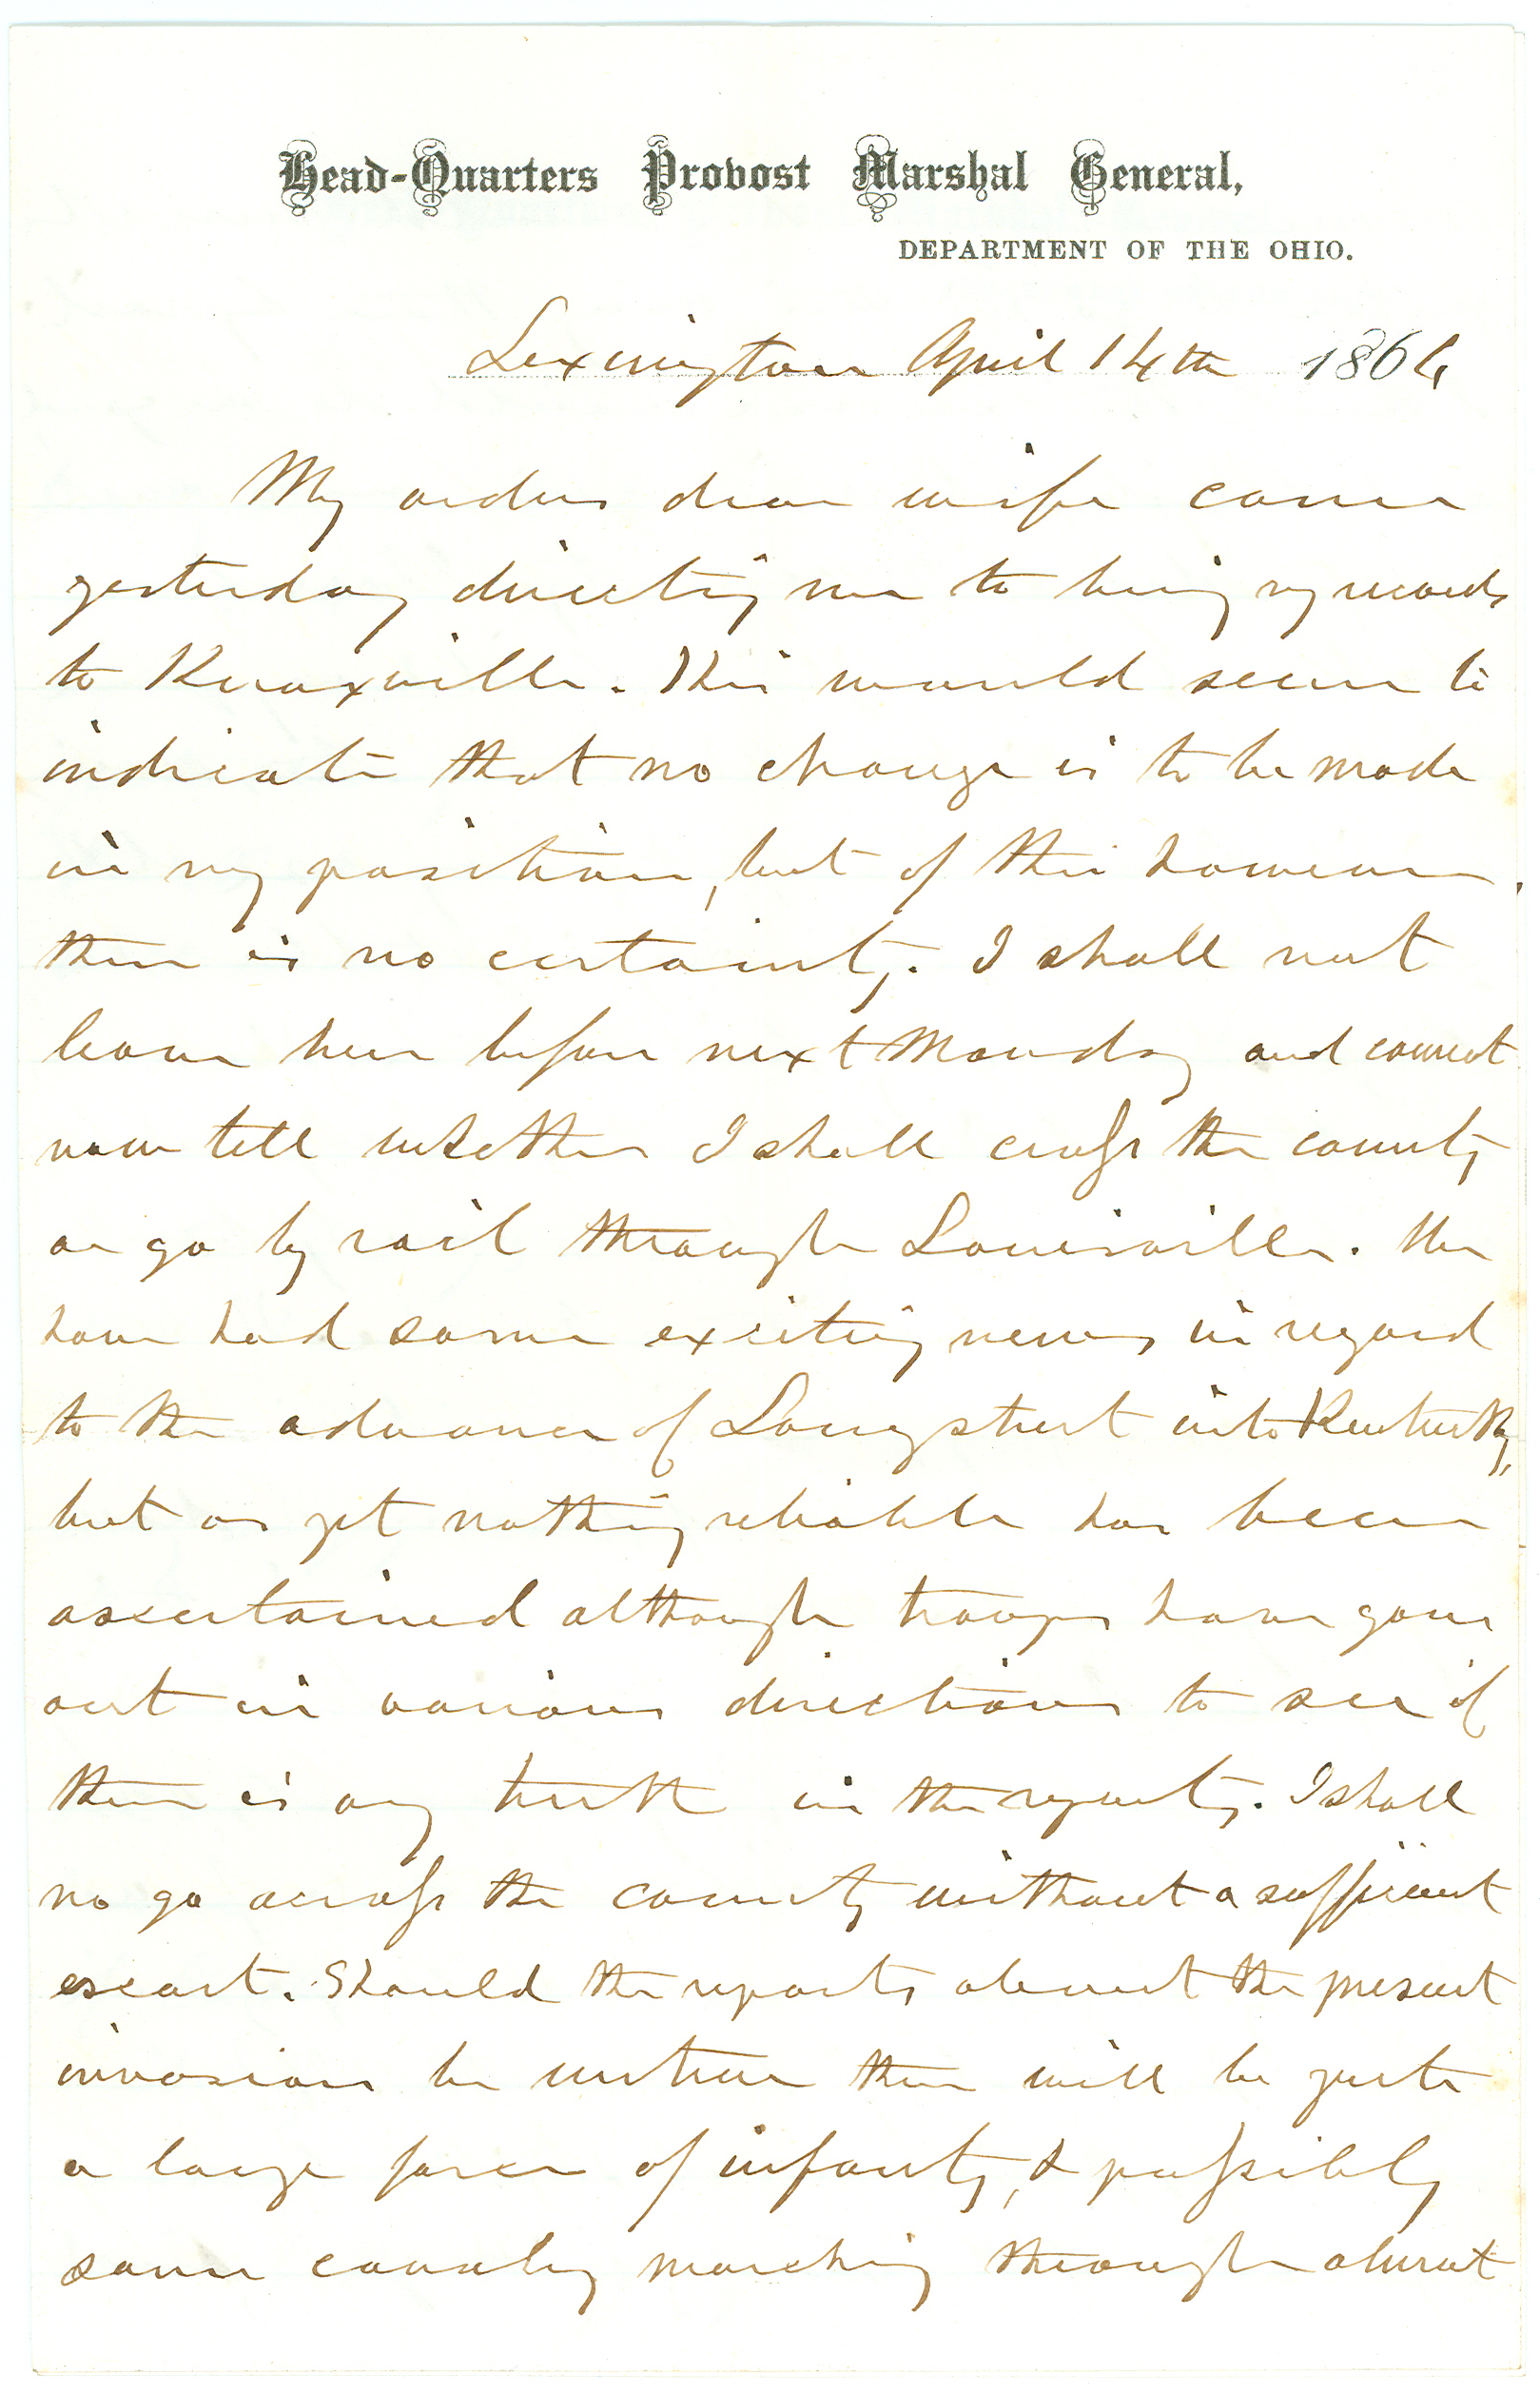 Head-Quarters Provost Marshal General,
DEPARTMENT OF THE OHIO.
Lexington April 14th 1864
My orders dear wife came
yesterday directing me to bring my records
to Knoxville. This would seem to
indicate that no change is to be made
in my position, but of this however,
there is no certainty. I shall not
leave here before next Monday and cannot
now tell whether I shall cross the country
or go by rail through Louisville. We
have had some exciting news in regard
to the advance of Longstreet into Kentucky,
but as yet nothing reliable has been
ascertained although troops have gone
out in various directions to see if
there is any truth in the reports. I shall
no go across the country without a sufficient
escort. Should the reports about the present
invasion be untrue there will be quite
a large force of infantry, & possibly
some cavalry marching through about